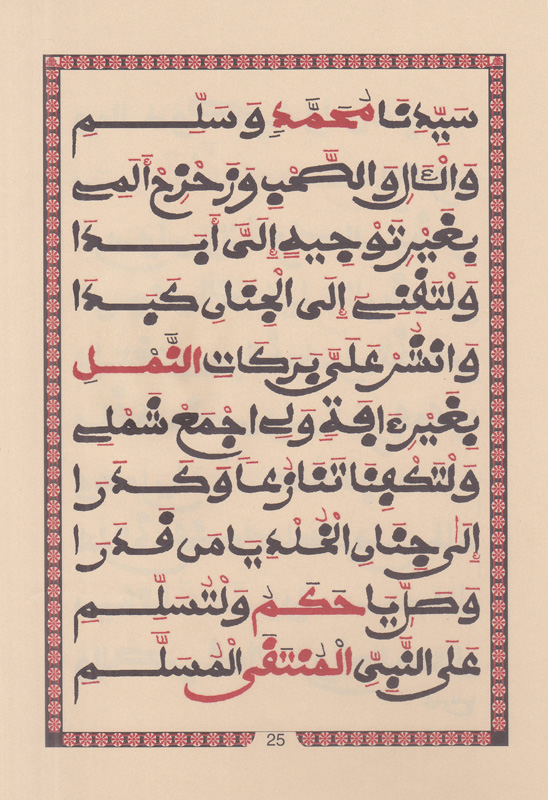 سَيِّدِنَا مُحَمَّدٍ وَسَلِّمِ
وَالْـَٔالِ وَالصَّحْبِ وَزَحْزِحْ أَلَمِے
بِغَيْرِ تَوْجِيهٍ إِلَىَّ أَبَدَا
وَلْتَفِنِے إِلَى الْجِنَانِ كَبَدَا
وَانْشُرْ عَلَىَّ بَرَكَاتِ النَّمْلِ
بِغَيْرِ ءَافَةٍ وَلِے اجْمَعْ شَمْلِے
وَلْتَكْفِنَا تَنَازُعاً وَكَدَرَا
إِلَى جِنَانِ الْخُلْدِ يَا مَن فَدَرَا
وَصَلِّ يَا حَكَمُ وَلْتُسَلِّمِ
عَلَى النَّبِىِّ الْمُنتَفَى الْمُسَلَّمِ
25